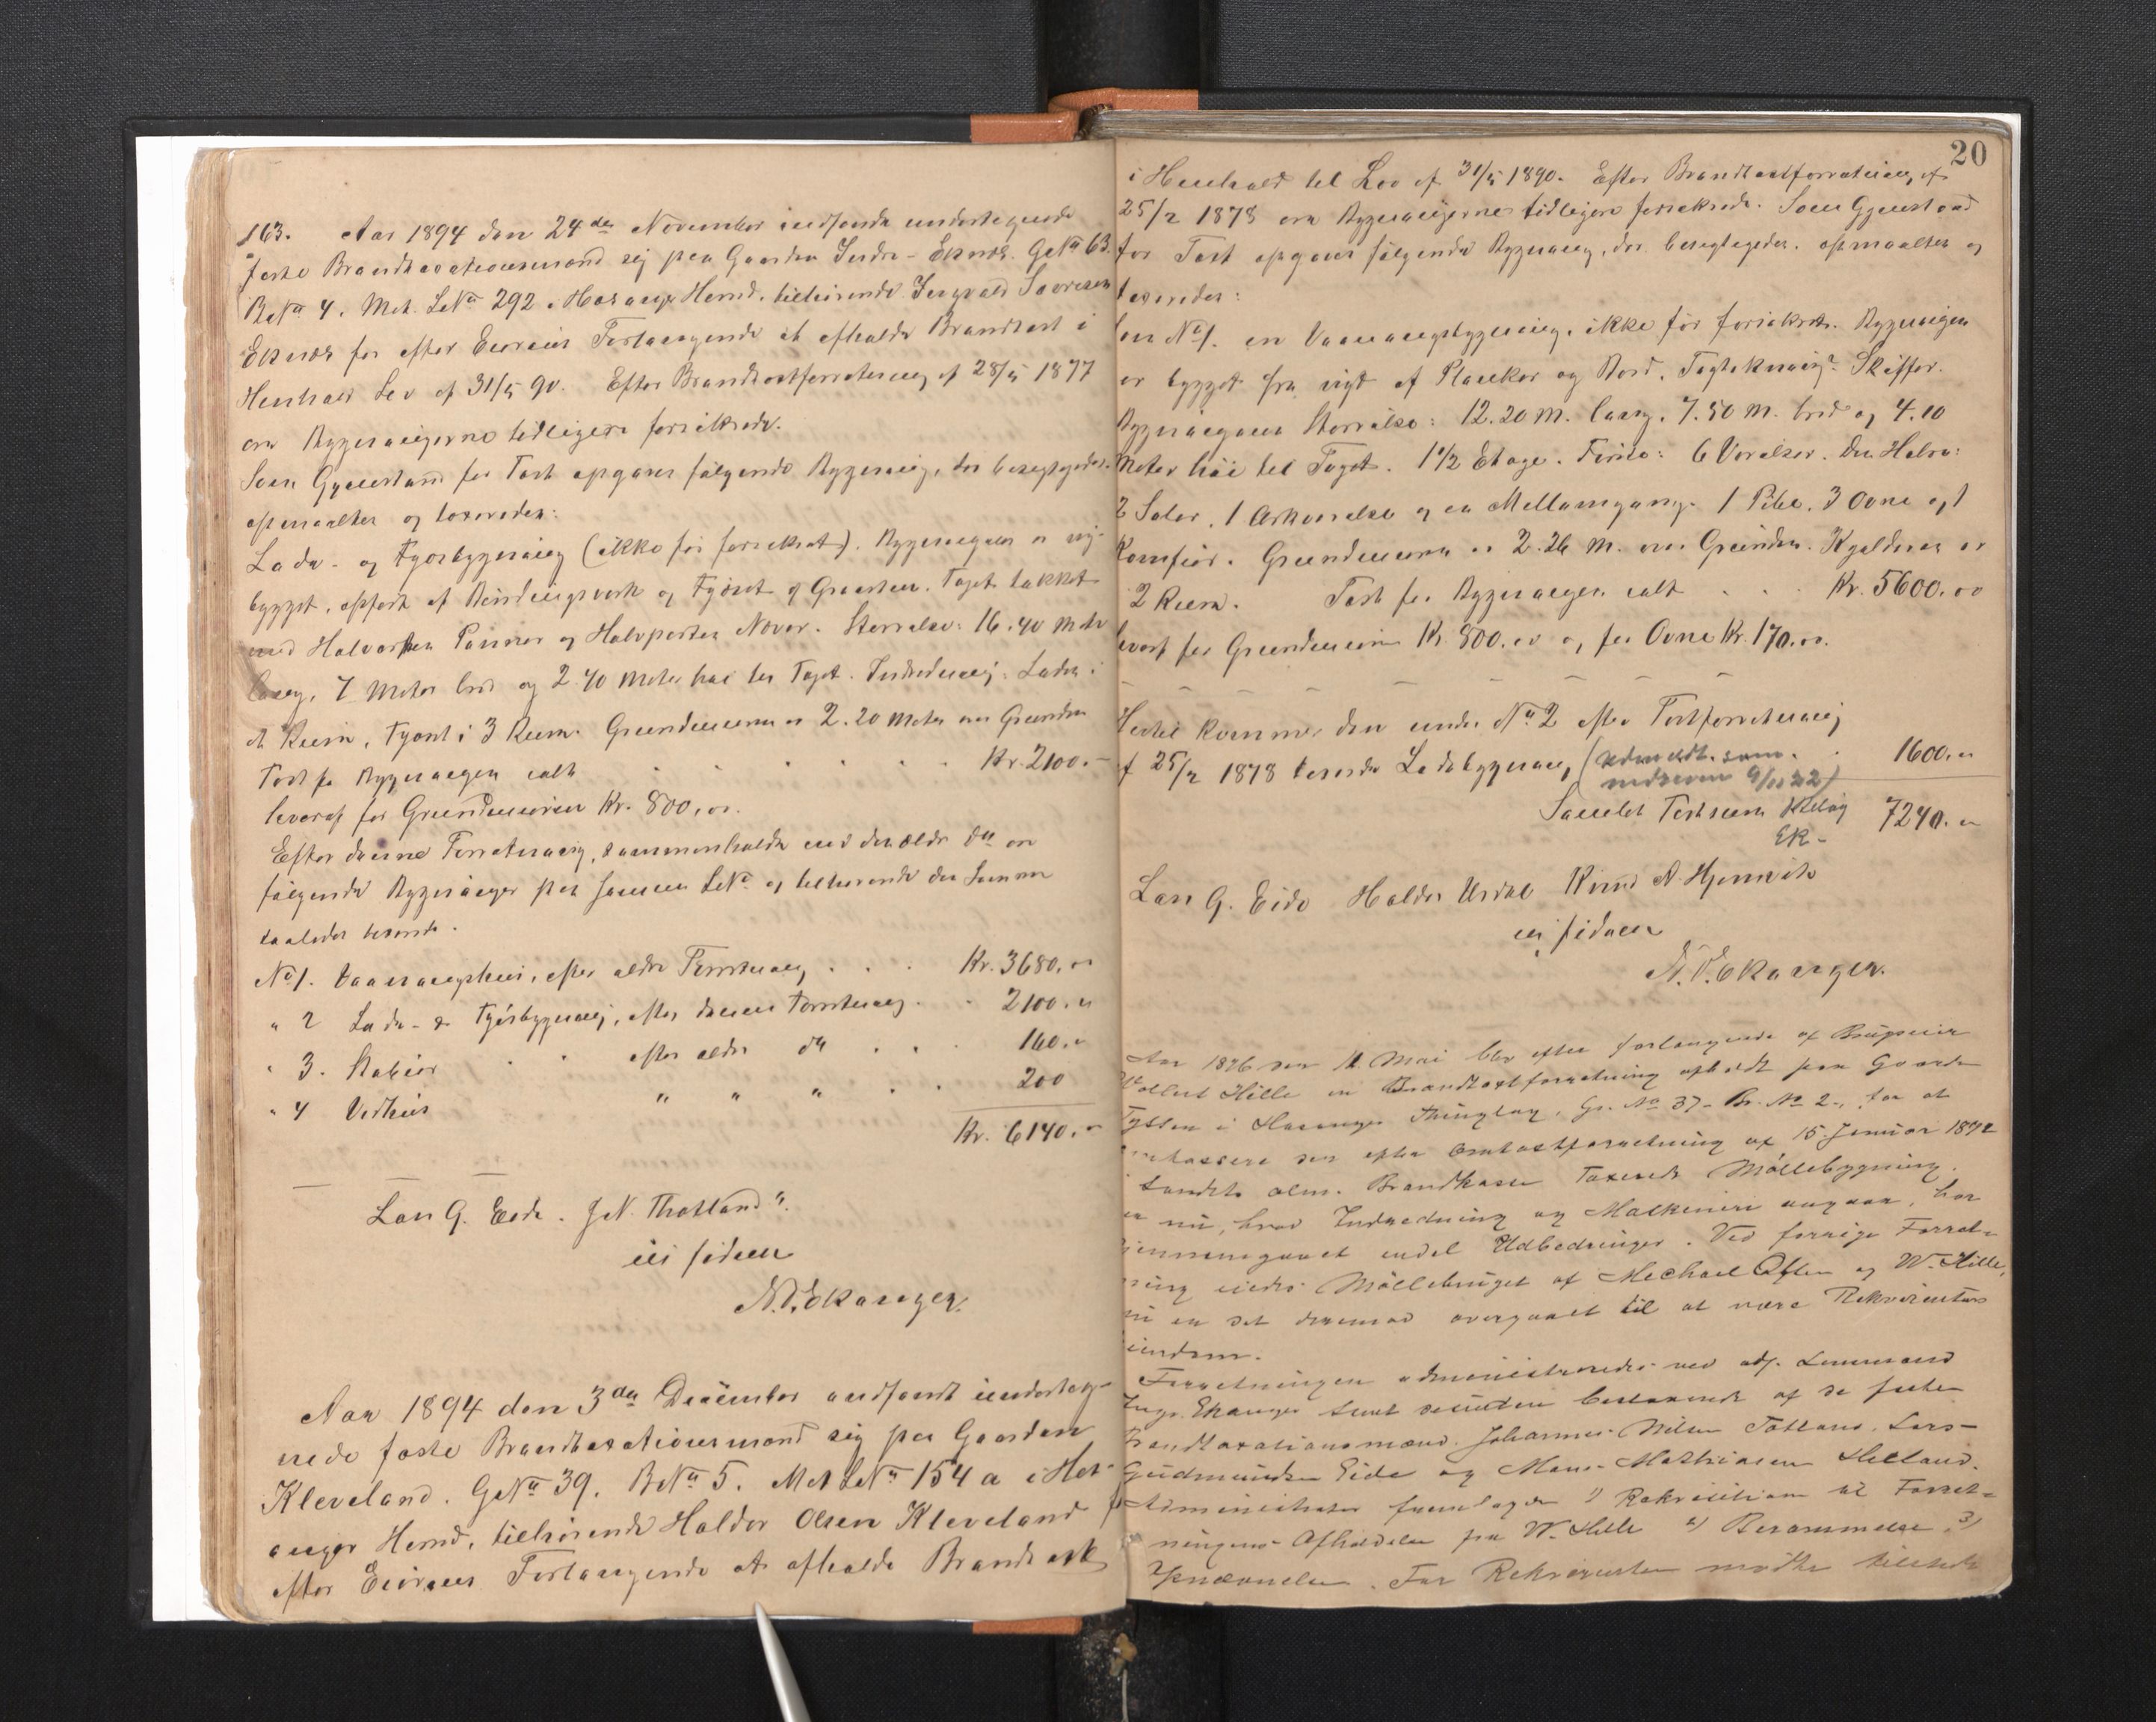 163. Aar 1894 den 24de November indfandt undertegnede
faste Brandtaxationsmænd sig paa Gaarden Indre-Eknæs. GNo 63.
BNo 4. Mat. LNo 292. Hosanger Herred, tilhørende Ingvald Iversen
Eknæs for efter Eierens Forlangende at afholde Brandtaxt i
Henhold Lov af 31/5 90. Efter Brandtaxtforretning af 28/5 1877
ere Bygningerne tidligere forsikrede.
Som Gjenstand for Taxt opgaves følgende Bygning, der besigtigedes.
opmaaltes og taxeredes:
Lade- og Fjøsbygning (ikke før forsikret). Bygningen er ny-
bygget, opført af Bindingsverk og Fjøset af Graasten. Taget tækket
med Halvparten Panner og Halvparten Never. Størrelse: 16.40 Meter
lang, 7 Meter bred og 2.40 Meter høi til Taget. Indredning: Laden i
et Rum, Fjøset i 3 Rum. Grundmuren er 2.20 Meter over Grunden
Taxt for Bygningen ialt . . . . . Kr. 2100.-
hvoraf for Grundmuren Kr. 800.00.
Efter denne Forretning, sammenholdt med den ældre do ere
følgende Bygninger paa samme LNo og tilhørende den samme
saaledes taxerede.
No 1. Vaaningshus, efter ældre Forretning . . . Kr. 3680.00
" 2 Lade- & Fjøsbygning, efter denne Forretning . . 2100.00
" 3. Stabur . . efter ældre do . . . 160.00
" 4 Vedhus " " " . . 200
Kr. 6140.00
Lars G. Eide. J N. Thotland
in fidem
N. O. Ekanger.
Aar 1894 den 3die December indfandt underteg-
nede faste Brandtaxationsmænd sig paa Gaarden
Kleveland. GNo 39. BNo 5. Mat LNo 154 a i Hos-
anger Herred, tilhørende Haldor Olsen Kleveland for
efter Eierens Forlangende at afholde Brandtaxt
20
i Henhold til Lov af 31/5 1890. Efter Brandtaxtforretning af
25/2 1878 ere Bygningerne tidligere forsikrede. Som Gjenstand
for Taxt opgaves følgende Bygning, der besigtigedes. opmaaltes og
taxeredes:
No 1. en Vaaningsbygning, ikke før forsikret. Bygningen
er bygget fra nyt af Planker og Bord. Tagtækning: Skiffer.
Bygningens Størrelse: 12.20 M. lang, 7.50 M. bred og 4.10
Meter høi til Taget. 1 1/2 Etage. Første: 6 Værelser. Den Halve:
2 Saler, 1 Arkværelse og en Mellemgang. 1 Pibe, 3 Ovne og 1
Komfur. Grundmuren er 2.26 M. over Grunden. Kjelderen er
2 Rum. Taxt for Bygningen ialt . . . Kr. 5600.00
hvoraf for Grundmuren Kr. 800.00 og for Ovne Kr. 170.00.
Hertil kommer den under No 2 efter Taxtforretning
af 25/2 1878 taxerede Ladebygning (udmeldt som . 1600.00
nedreven 9/11 22)
Samlet Taxtsum 7240.00
Lars G. Eide Haldor Urdal Knud A. Hjemvik
in fidem
N. O. Ekanger.
Aar 1896 den 11. Mai blev efter Forlangende af Brugseier
Wollert Hille en Brandtaxtforretning afholdt paa Gaarden
Tyssen i Hosanger Thinglag, Gr. No 37- Br. No 2-, for at
omtaxere den efter Omtaxtforretning af 15 Januar 1892
Landets alm. Brandkasse taxerede Møllebygning.
nu, hvad Indredning og Maskineri angaar, har
gjennemgaaet endel Udbedringer. Ved forrige Forret-
ning eiedes Møllebruget af Mechael Olsen og W. Hille,
nu er det derimod overgaaet til at være Rekvirentens
Eiendom.
Forretningen administreredes ved adj. Lensmand
Ingv. Ekanger samt de bestaaende af de faste
Brandtaxationsmænd. Johannes Nilsen Totland, Lars
Gudmundsen Eide og Mons Mathiasen Helland.
Administrator fremlagde 1) Rekvisition til Forret-
ningens Afholdelse fra W. Hille 2) Berammelse 3)
Opnævnelse. For Rekvirenten mødte tilstede